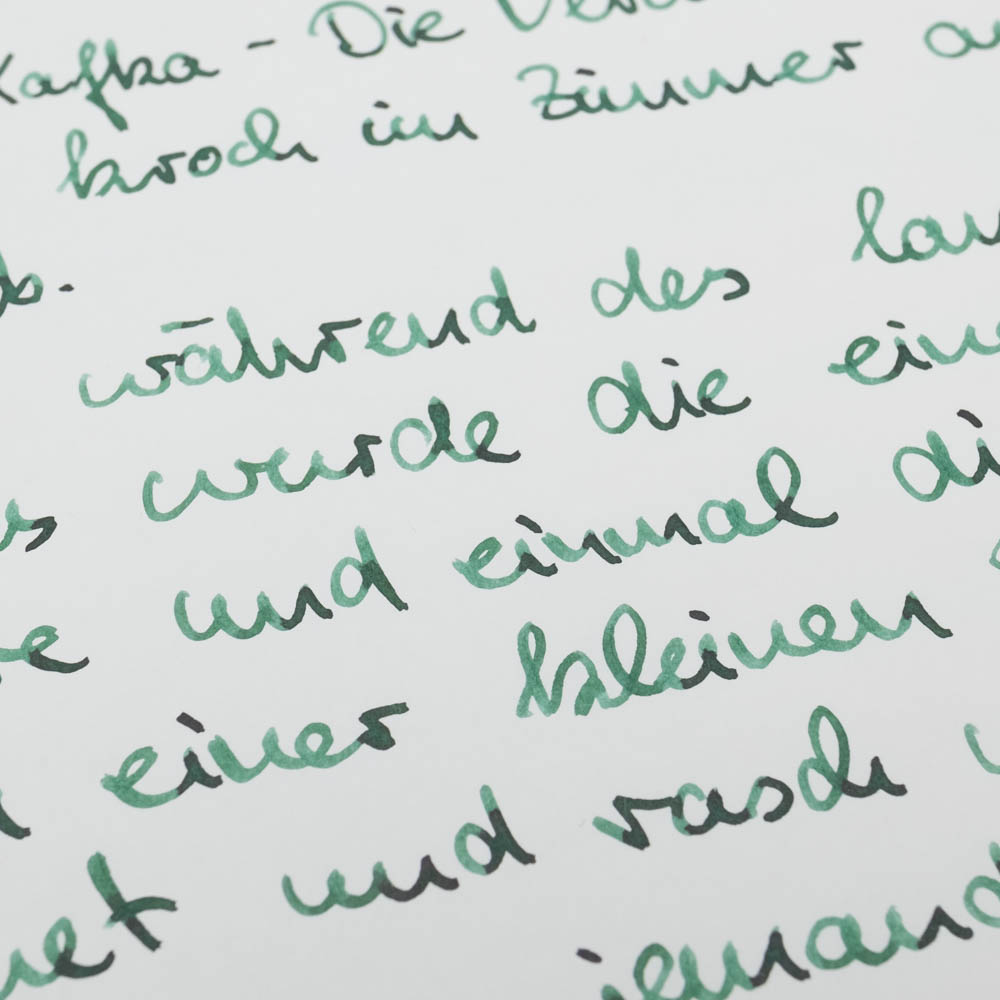 Kafka - Die Verw
kroch im Zimmer au
b.
während des lan
us wurde die eine
re und einmal di
einer kleinen
net und rasch
jemand